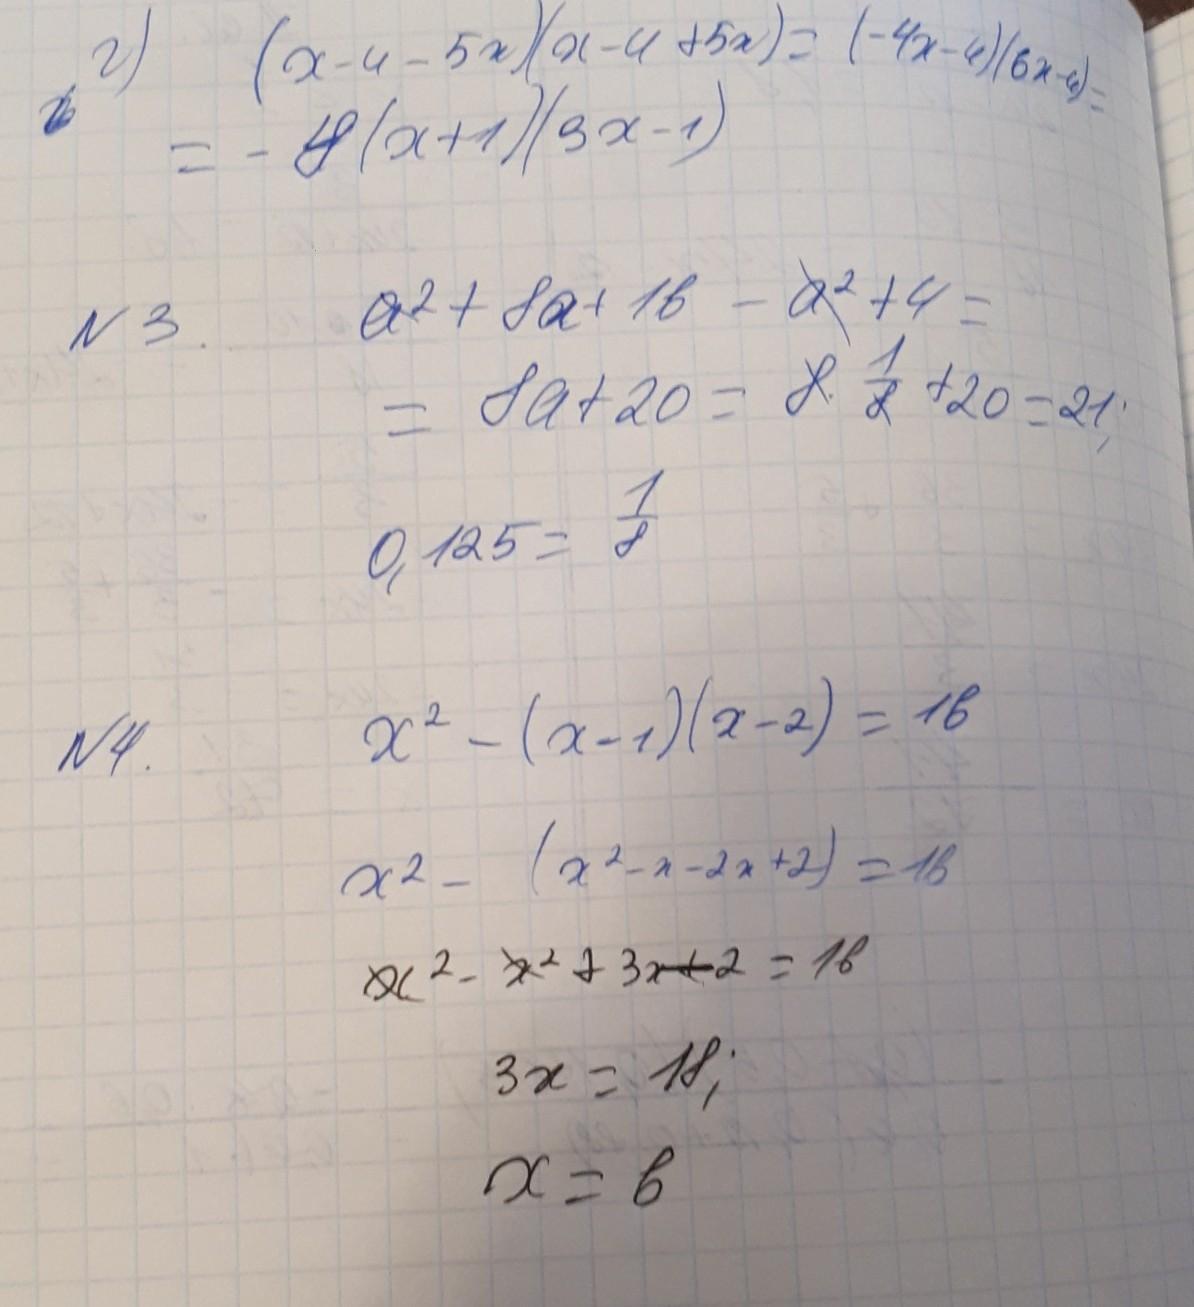 г) (x-4-5x)(x-4+5x)=(-4x-4)(6x-4)=
=-8(x+1)(3x-1)
N3. a²+8a+16-a²+4=
=8a+20=8·1/8+20=21;
0,125=1/8
N4. x²-(x-1)(x-2)=16
x²-(x²-x-2x+2)=16
x²-x²+3x-2=16
3x=18;
x=6